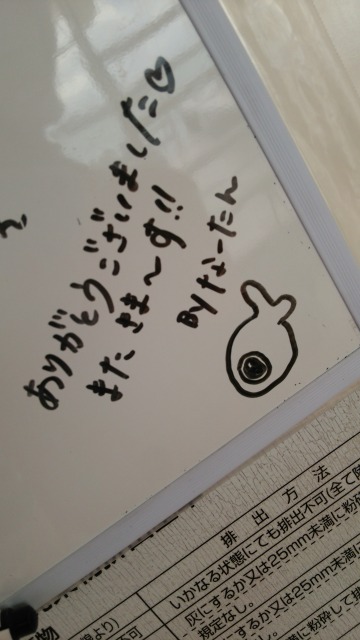 ありがとうございました♡
またきま～す!!
Byなーたん
排出方法
いかなる状態にても排出不可(全て
灰にするか又は25mm未満に粉砕
規定なし。
するか又は25mm未満
に粉砕して